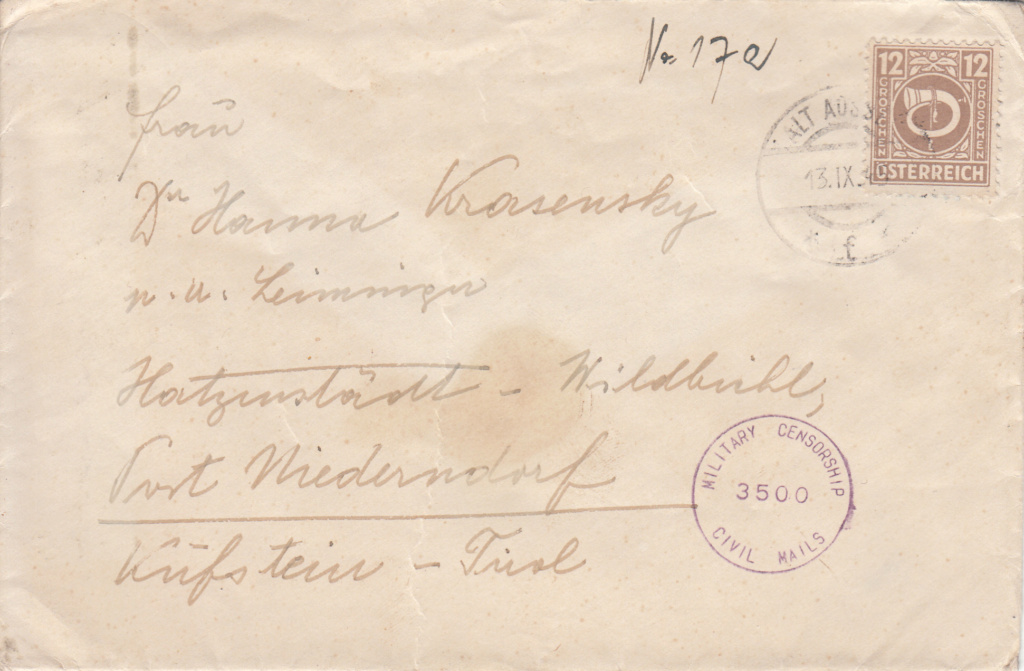 No 17a
12 12
GROSCHEN GROSCHEN
ÖSTERREICH
ALT AUSS
13.IX.
f
Frau
Dr Hanna Krasensky
Hatzenstädt - Wildbichl,
Post Niederndorf
Kufstein - Tirol
MILITARY CENSORSHIP
3500
CIVIL MAILS